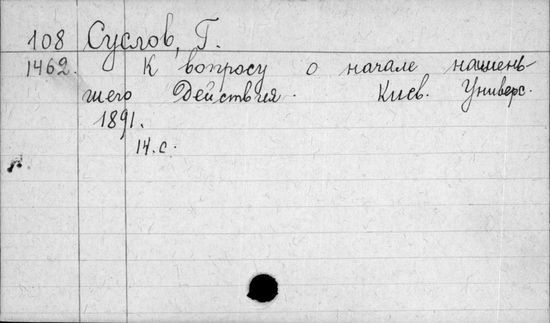 108 Суслов, Г.
1462. К вопросу о начале нашень-
шего Действия. Киев. Универс.
1891.
14.с.